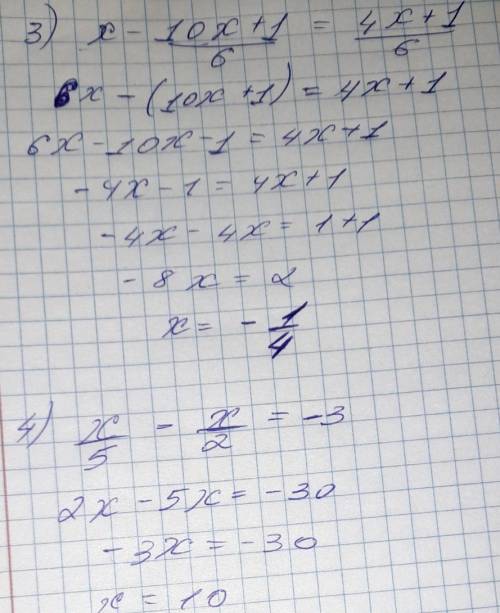 3) x - (10x+1)/6 = (4x+1)/6
6x - (10x+1) = 4x+1
6x - 10x - 1 = 4x+1
-4x - 1 = 4x+1
-4x - 4x = 1+1
-8x = 2
x = -1/4
4) x/5 - x/2 = -3
2x - 5x = -30
-3x = -30
x = 10